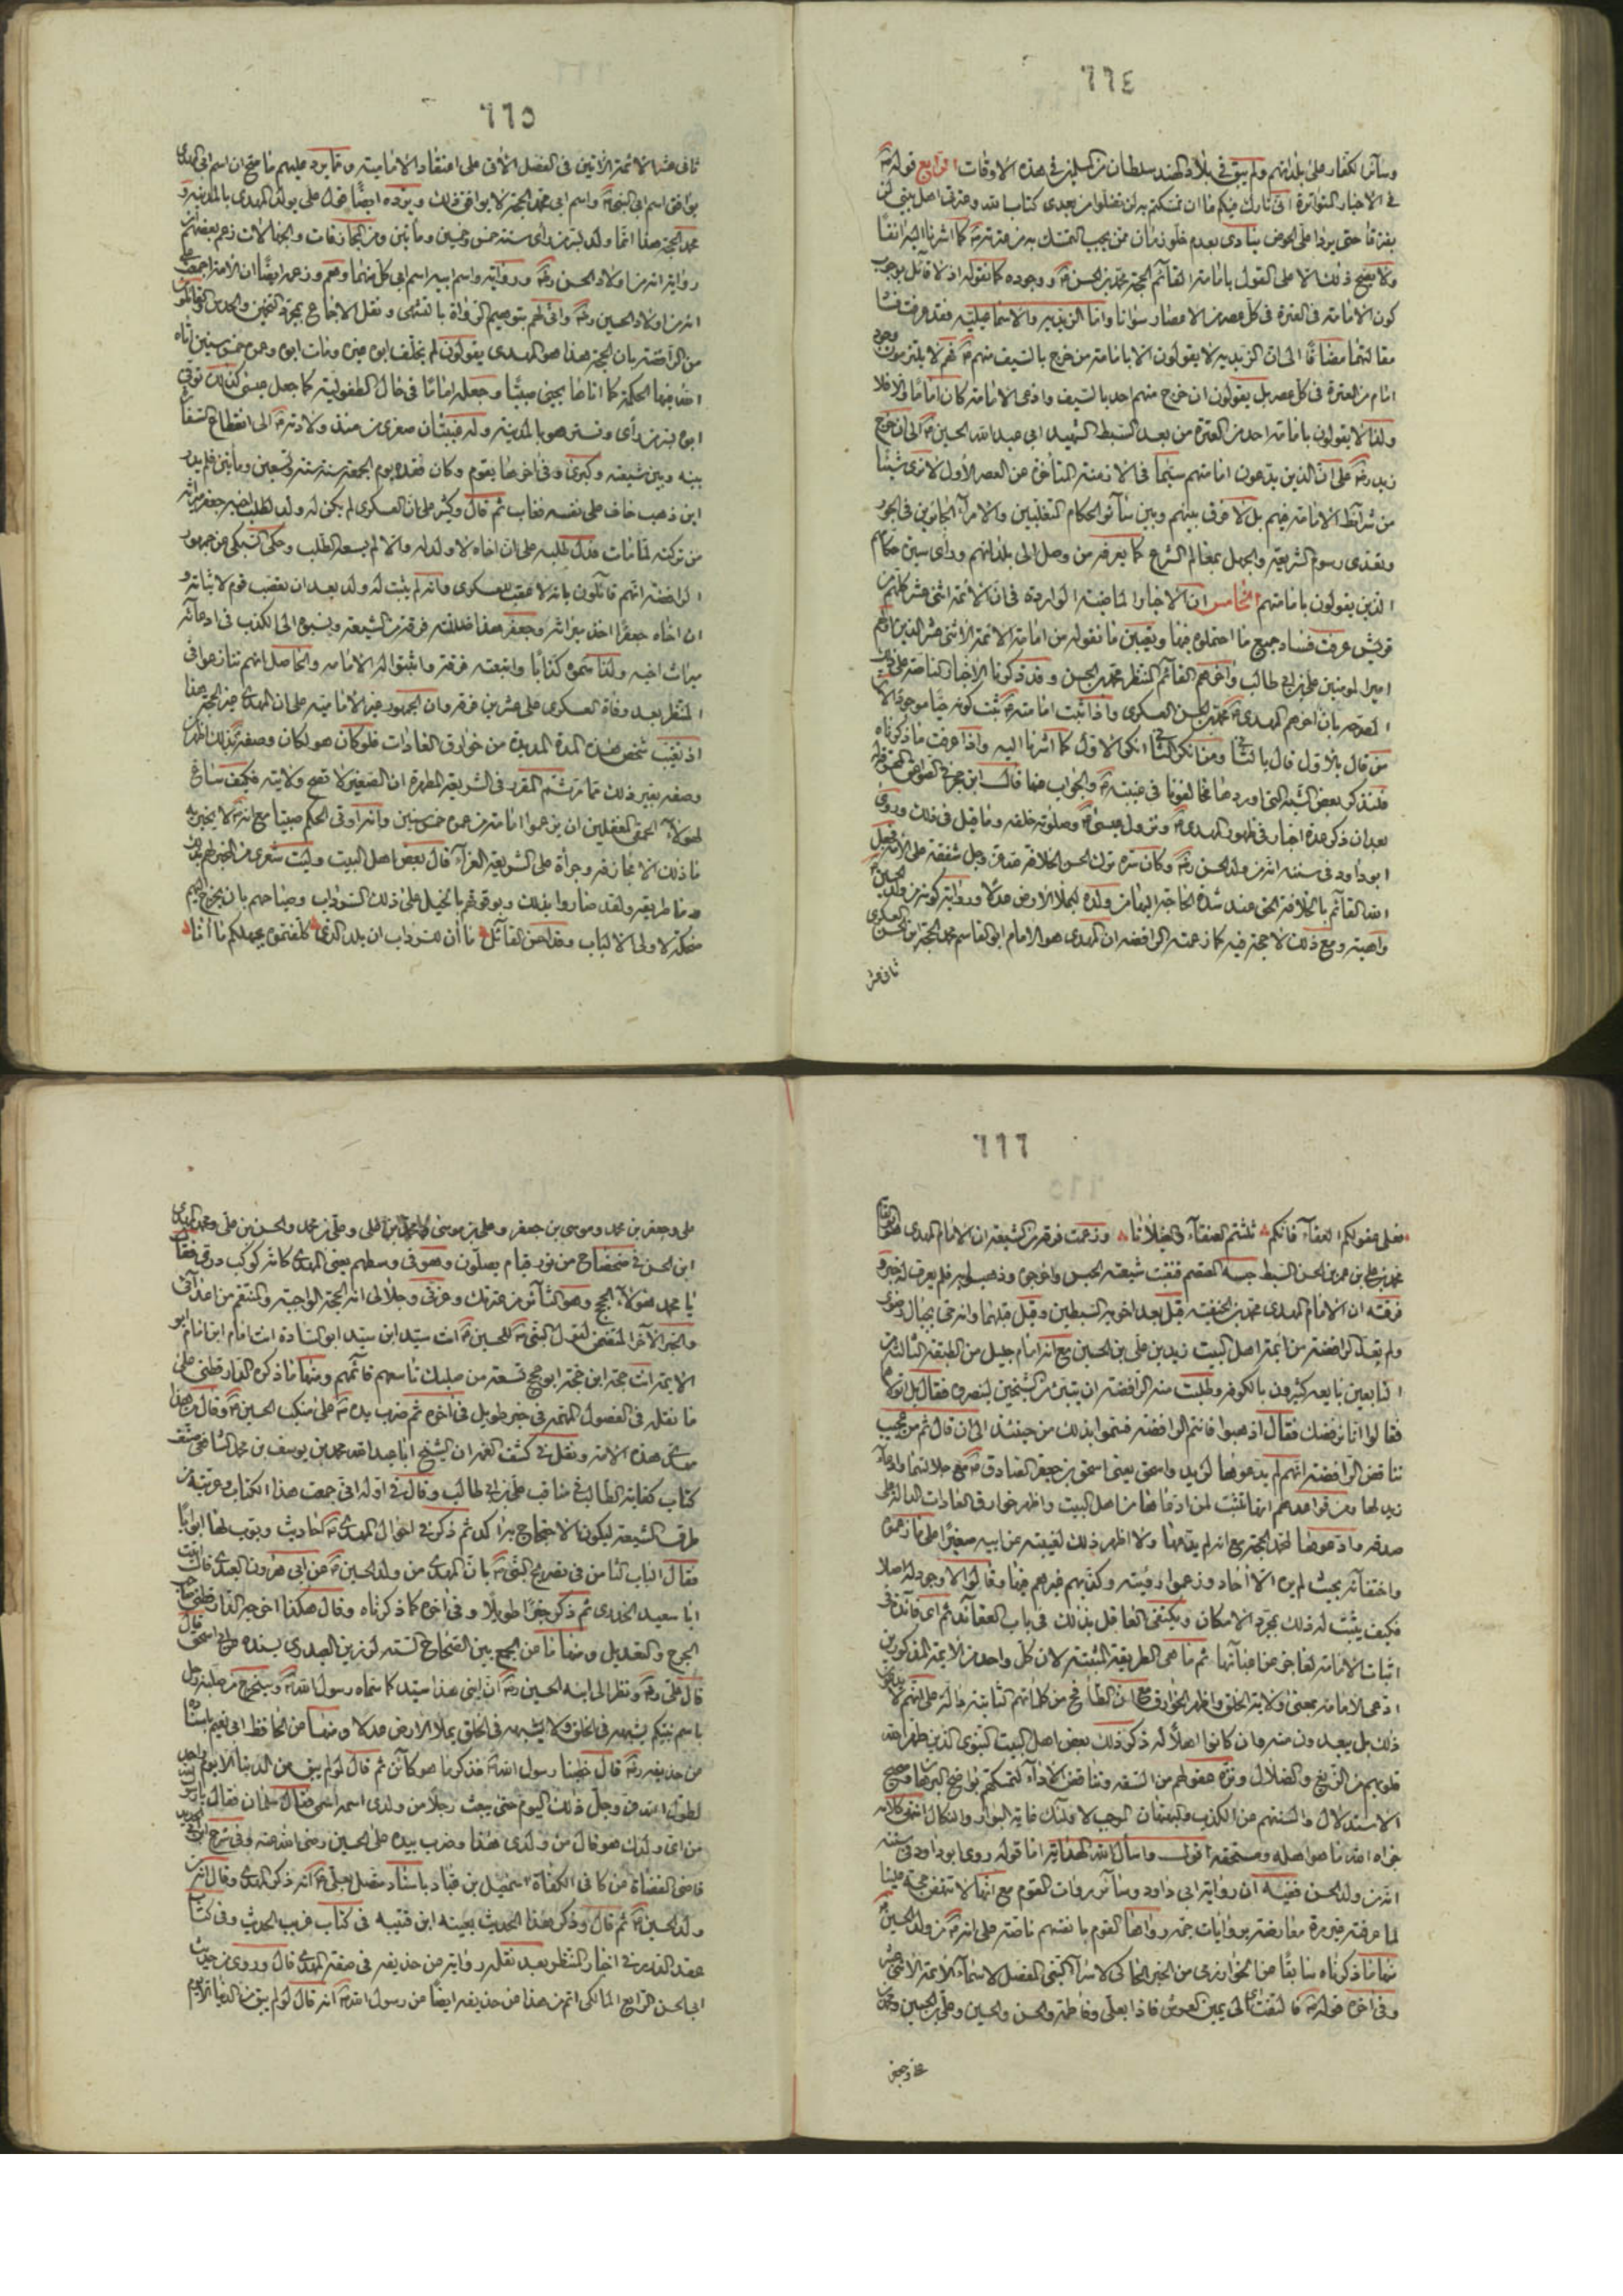 ٦٦٤
وسائر الكفار على بلدانهم ولم يبق في بلاد الهند سلطان من المسلمين في هذه الاوقات الرابع قوله
في الاخبار المتواترة انى تارك فيكم ما ان تمسكتم به لن تضلوا من بعدى كتاب الله وعترتى اهل بيتى لن
يفترقا حتى يردا على الحوض ينادى بعدم خلو زمان ممن يجب التمسك به من عترته كما اشرنا اليه انفا
ولا يصح ذلك الا على القول بامامة القائم الحجة محمد بن الحسن ووجوده كما نقوله اذ لا قائل بوجوب
كون الامامة في العترة في كل عصر من الامصار سوانا واما الزيدية والاسماعيلية فقد عرفت فساد
مقالتهما مضافا الى ان الزيدية لا يقولون الا بامامة من خرج بالسيف منهم فهم لا يلتزمون وجود
امام من العترة في كل عصر بل يقولون ان خرج منهم احد بالسيف وادعى الامامة كان اماما والا فلا
ولذا لا يقولون بامامة احد من العترة من بعد السبط الشهيد ابي عبد الله الحسين الى ان خرج
زيد على ان الذين يدعون امامتهم سيما في الازمنة المتأخرة عن العصر الأول لا نرى شيئا
من شرائط الامامة فيهم بل لا فرق بينهم وبين سائر الحكام المتغلبين والامراء الجائرين في الجور
وتعدى رسوم الشريعة والجهل بمعالم الشرع كما يعرفه من وصل الى بلدانهم ورأى سيرة حكام
الذين يقولون بامامتهم الخامس ان الاخبار الماضية الواردة في ان الائمة اثنى عشر كلهم من
قريش عرفت فساد جميع ما احتملوه فيها وتعين ما نقوله من امامة الائمة الاثنى عشر الذين اولهم
امير المومنين على بن ابي طالب واخرهم القائم المنتظر محمد بن الحسن وقد ذكرنا الاخبار الناصة على ذلك
المصرحة بان اخرهم المهدى محمد بن الحسن العسكرى واذا ثبت امامته ثبت كونه حيا موجودا لان
من قال بالاول قال بالثانى ومن انكر الثانى انكر الاول كما اشرنا اليه واذا عرفت ما ذكرناه
فلنذكر بعض الشبه التى اوردها مخالفونا في غيبته والجواب عنها قال ابن حجر في الصواعق المحرقة
بعد ان ذكر عدة اخبار في ظهور المهدى ونزول عيسى وصلوته خلفه وما قيل في ذلك وروى
ابو داود في سننه انه من ولد الحسن وكان سره ترك الحسن الخلافة لله عز وجل شفقة على الامة فجعل
الله القائم بالخلافة الحق عند شدة الحاجة اليها من ولده ليملأ الارض عدلا ورواية كونه من ولد الحسين
واهية ومع ذلك لا حجة فيه كما زعمته الرافضة ان المهدى هو الامام ابو القاسم محمد الحجة بن الحسن العسكرى
ثانى عشر
٦٦٥
ثانى عشر الائمة الاتين في الفصل الاتى على اعتقاد الامامية ومما يرد عليهم ما صح ان اسم ابي المهدى
يوافق اسم ابي النبي واسم ابي محمد الحجة لا يوافق ذلك ويرده ايضا قول على مولد المهدى بالمدينة و
محمد الحجة هذا انما ولد بسر من رأى سنة خمس وخمسين ومأتين ومن المجازفات والجهالات زعم بعضهم ان
رواية انه من اولاد الحسن ورواية واسم ابيه اسم ابي كل منهما وهم وزعمه ايضا ان الامة اجمعت على
انه من اولاد الحسين وانى لهم بتوهيم الرواة بالتشهى ونقل الاجماع بمجرد التخمين والحدس القائلون
من الرافضة بان الحجة هذا هو المهدى يقولون لم يخلف ابوه غيره ومات ابوه وعمره خمس سنين اتاه
الله فيها الحكمة كما اتاها يحيى صبيا وجعله اماما في حال الطفولية كما جعل عيسى كذلك توفي
ابوه بسر من رأى وتستر هو بالمدينة وله غيبتان صغرى من منذ ولادته الى انقطاع السفارة
بينه وبين شيعته وكبرى وفي اخرها يقوم وكان فقده يوم الجمعة سنة ست وتسعين ومأتين فلم يدر
اين ذهب خاف على نفسه فغاب ثم قال وكثير على ان العسكرى لم يكن له ولد لطلب اخيه جعفر ميراثه
من تركته لما مات فدل طلبه على ان اخاه لا ولد له والا لم يسعه الطلب وحكى السبكى عن جمهور
الرافضة انهم قائلون بانه لا عقب للعسكرى وانه لم يثبت له ولد بعد ان تعصب قوم لاثباته و
ان اخاه جعفرا اخذ ميراثه وجعفر هذا ضللته فرقة من الشيعة ونسبوه الى الكذب في ادعائه
ميراث اخيه ولذا سموه كذابا واتبعته فرقة واثبتوا له الامامه والحاصل انهم تنازعوا في
المنتظر بعد وفاة العسكرى على عشرين فرقة وان الجمهور غير الامامية على ان المهدى غير الحجة هذا
اذ تغيب شخص هذه المدة المديدة من خوارق العادات فلو كان هو لكان وصفه بذلك اظهر من
وصفه بغير ذلك مما مر ثم المقرر في الشريعة المطهرة ان الصغير لا تصح ولايته فكيف ساغ
لهؤلاء الحمقى المغفلين ان يزعموا امامة من عمره خمس سنين وانه اوتى الحكم صبيا مع انه لا يخبر به
ما ذلك الا مجازفة وجرأة على الشريعة الغراء قال بعض اهل البيت وليت شعرى من المخبر لهم بهذا
وما طريقه ولقد صاروا بذلك وبوقوفهم بالخيل على ذلك السرداب وصياحهم بان يخرج اليهم
ضحكة لاولى الالباب ولقد احسن القائل ما آن للسرداب ان يلد الذى كلفتموه بجهلكم ما آنا
٦٦٦
فعلى عقولكم العفاء فانكم ثلثتم العنقاء والغيلانا وزعمت فرقة من الشيعة ان الامام المهدى هو ابو القاسم
محمد بن على بن عمر بن الحسن السبط حبسه المعتصم فنقبت شيعته الحبس واخرجوه وذهبوا به فلم يعرف له خبر و
فرقة ان الامام المهدى محمد بن الحنفية قيل بعد اخويه السبطين وقيل قبلهما وانه حى بجبال رضوى
ولم تعد الرافضة من ائمة اهل البيت زيد بن على بن الحسين مع انه امام جليل من الطبقة الثالثة من
التابعين بايعه كثيرون بالكوفة وطلبت منه الرافضة ان يتبرء من الشيخين لينصروه فقال بل اتولاهم
فقالوا انا نرفضك فقال اذهبوا فانتم الرافضة فسموا بذلك من حينئذ الى ان قال ثم من عجيب
تناقض الرافضة انهم لم يدعوها لزيد واسحق يعنى اسحق بن جعفر الصادق مع جلالتهما وادعاء
زيد لها ومن قواعدهم انها تثبت لمن ادعاها من اهل البيت واظهر خوارق العادات الدالة على
صدقه وادعوها لمحمد الحجة مع انه لم يدعها ولا اظهر ذلك لغيبته عن ابيه صغيرا على ما زعموه
واختفائه بحيث لم يره الا آحاد وزعموا رؤيته وكذبهم غيرهم فيها وقالوا لا وجود له اصلا
فكيف يثبت له ذلك بمجرد الامكان ويكتفى العاقل بذلك في باب العقائد ثم اى فائدة في
اثبات الامامة لعاجز عن اعبائها ثم ما هى الطريقة المثبتة لان كل واحد من الائمة المذكورين
ادعى الامامة بمعنى ولاية الخلق واظهر الخوارق مع ان الطافح من كلماتهم الثابتة دالة على انهم لا يدعون
ذلك بل يبعدون منه وان كانوا اهلا له ذكر ذلك بعض اهل البيت النبوى الذين طهر الله
قلوبهم من الزيغ والضلال ونزه عقولهم من السفه وتناقض الاراء لتمسكهم بواضح البرهان وصحيح
الاستدلال والسنتهم عن الكذب والبهتان الموجب لاولئك غاية البوار والنكال انتهى كلامه
جزاه الله ما هو اهله ومستحقه اقول واسأل الله الهداية اما قوله روى ابو داود في سننه
انه من ولد الحسن ففيه ان رواية ابي داود وسائر روات القوم مع انها لا تنهض حجة علينا
لما عرفته غير مرة معارضة بروايات جمة رواها القوم بانفسهم ناصة على انه من ولد الحسين
منها ما ذكرناه سابقا عن الخوارزمى من الخبر الحاكى لاسراء النبي المفصل لاسماء الائمة الاثنى عشر
وفي اخره قوله فالتفت الى يمين العرش فاذا بعلى وفاطمة والحسن والحسين وعلى بن الحسين ومحمد بن
على وجعفر
على وجعفر بن محمد وموسى بن جعفر وعلى بن موسى ومحمد بن على وعلى بن محمد والحسن بن على ومحمد المهدى
ابن الحسن في ضحضاح من نور قيام يصلون وهو في وسطهم يعنى المهدى كانه كوكب درى فقال
يا محمد هؤلاء الحجج وهو الثائر من عترتك وعزتى وجلالى انه الحجة الواجبة والمنتقم من اعدائى
والخبر الآخر المتضمن لقول النبي للحسين انت سيد ابن سيد ابو السادة انت امام ابن امام ابو
الائمة انت حجة ابن حجة ابو حجج تسعة من صلبك تاسعهم قائمهم ومنها ما ذكره الدارقطنى على
ما نقله في الفصول المهمة في خبر طويل في اخره ثم ضرب بيده على منكب الحسين وقال من هذا
مهدى هذه الامة ونقل في كشف الغمة ان الشيخ ابا عبد الله محمد بن يوسف بن محمد الشافعى صنف
كتاب كفاية الطالب في مناقب على بن ابي طالب وقال في اوله انى جمعت هذا الكتاب وعريته من
طرق الشيعة ليكون الاحتجاج به آكد ثم ذكر في احوال المهدى احاديث وبوب لها ابوابا
فقال الباب التاسع في تصريح النبي بان المهدى من ولد الحسين عن ابي هرون العبدى قال اتيت
ابا سعيد الخدرى ثم ذكر خبرا طويلا وفي اخره كما ذكرناه وقال هكذا اخرجه الدارقطنى صاحب
الجرح والتعديل ومنها ما عن الجمع بين الصحاح الستة لرزين العبدرى بسنده عن ابي اسحق قال
قال على ونظر الى ابنه الحسين ان ابنى هذا سيد كما سماه رسول الله وسيخرج من صلبه رجل
باسم نبيكم يشبهه في الخلق ولا يشبهه في الخلق يملأ الارض عدلا ومنها عن الحافظ ابي نعيم باسناده
عن حذيفة قال خطبنا رسول الله فذكرنا هو كائن ثم قال لو لم يبق من الدنيا الا يوم واحد
لطول الله عز وجل ذلك اليوم حتى يبعث رجلا من ولدى اسمه اسمى فقال سلمان فقال يا رسول الله
من اى ولدك هو قال من ولدى هذا وضرب بيده على الحسين رضى الله عنه وفي شرح ابن ابي الحديد
قاضى القضاة عن كافى الكفاة اسمعيل بن عباد باسناد متصل بعلى انه ذكر المهدى وقال انه من
ولد الحسين ثم قال وذكر هذا الحديث بعينه ابن قتيبه في كتاب غريب الحديث وفي كتاب
عقد الدرر في اخبار المنتظر بعد نقله رواية عن حذيفة في صفة المهدى قال وروى من حديث
ابي الحسن الربعى المالكى اتم من هذا عن حذيفة ايضا عن رسول الله انه قال لو لم يبق من الدنيا الا يوم